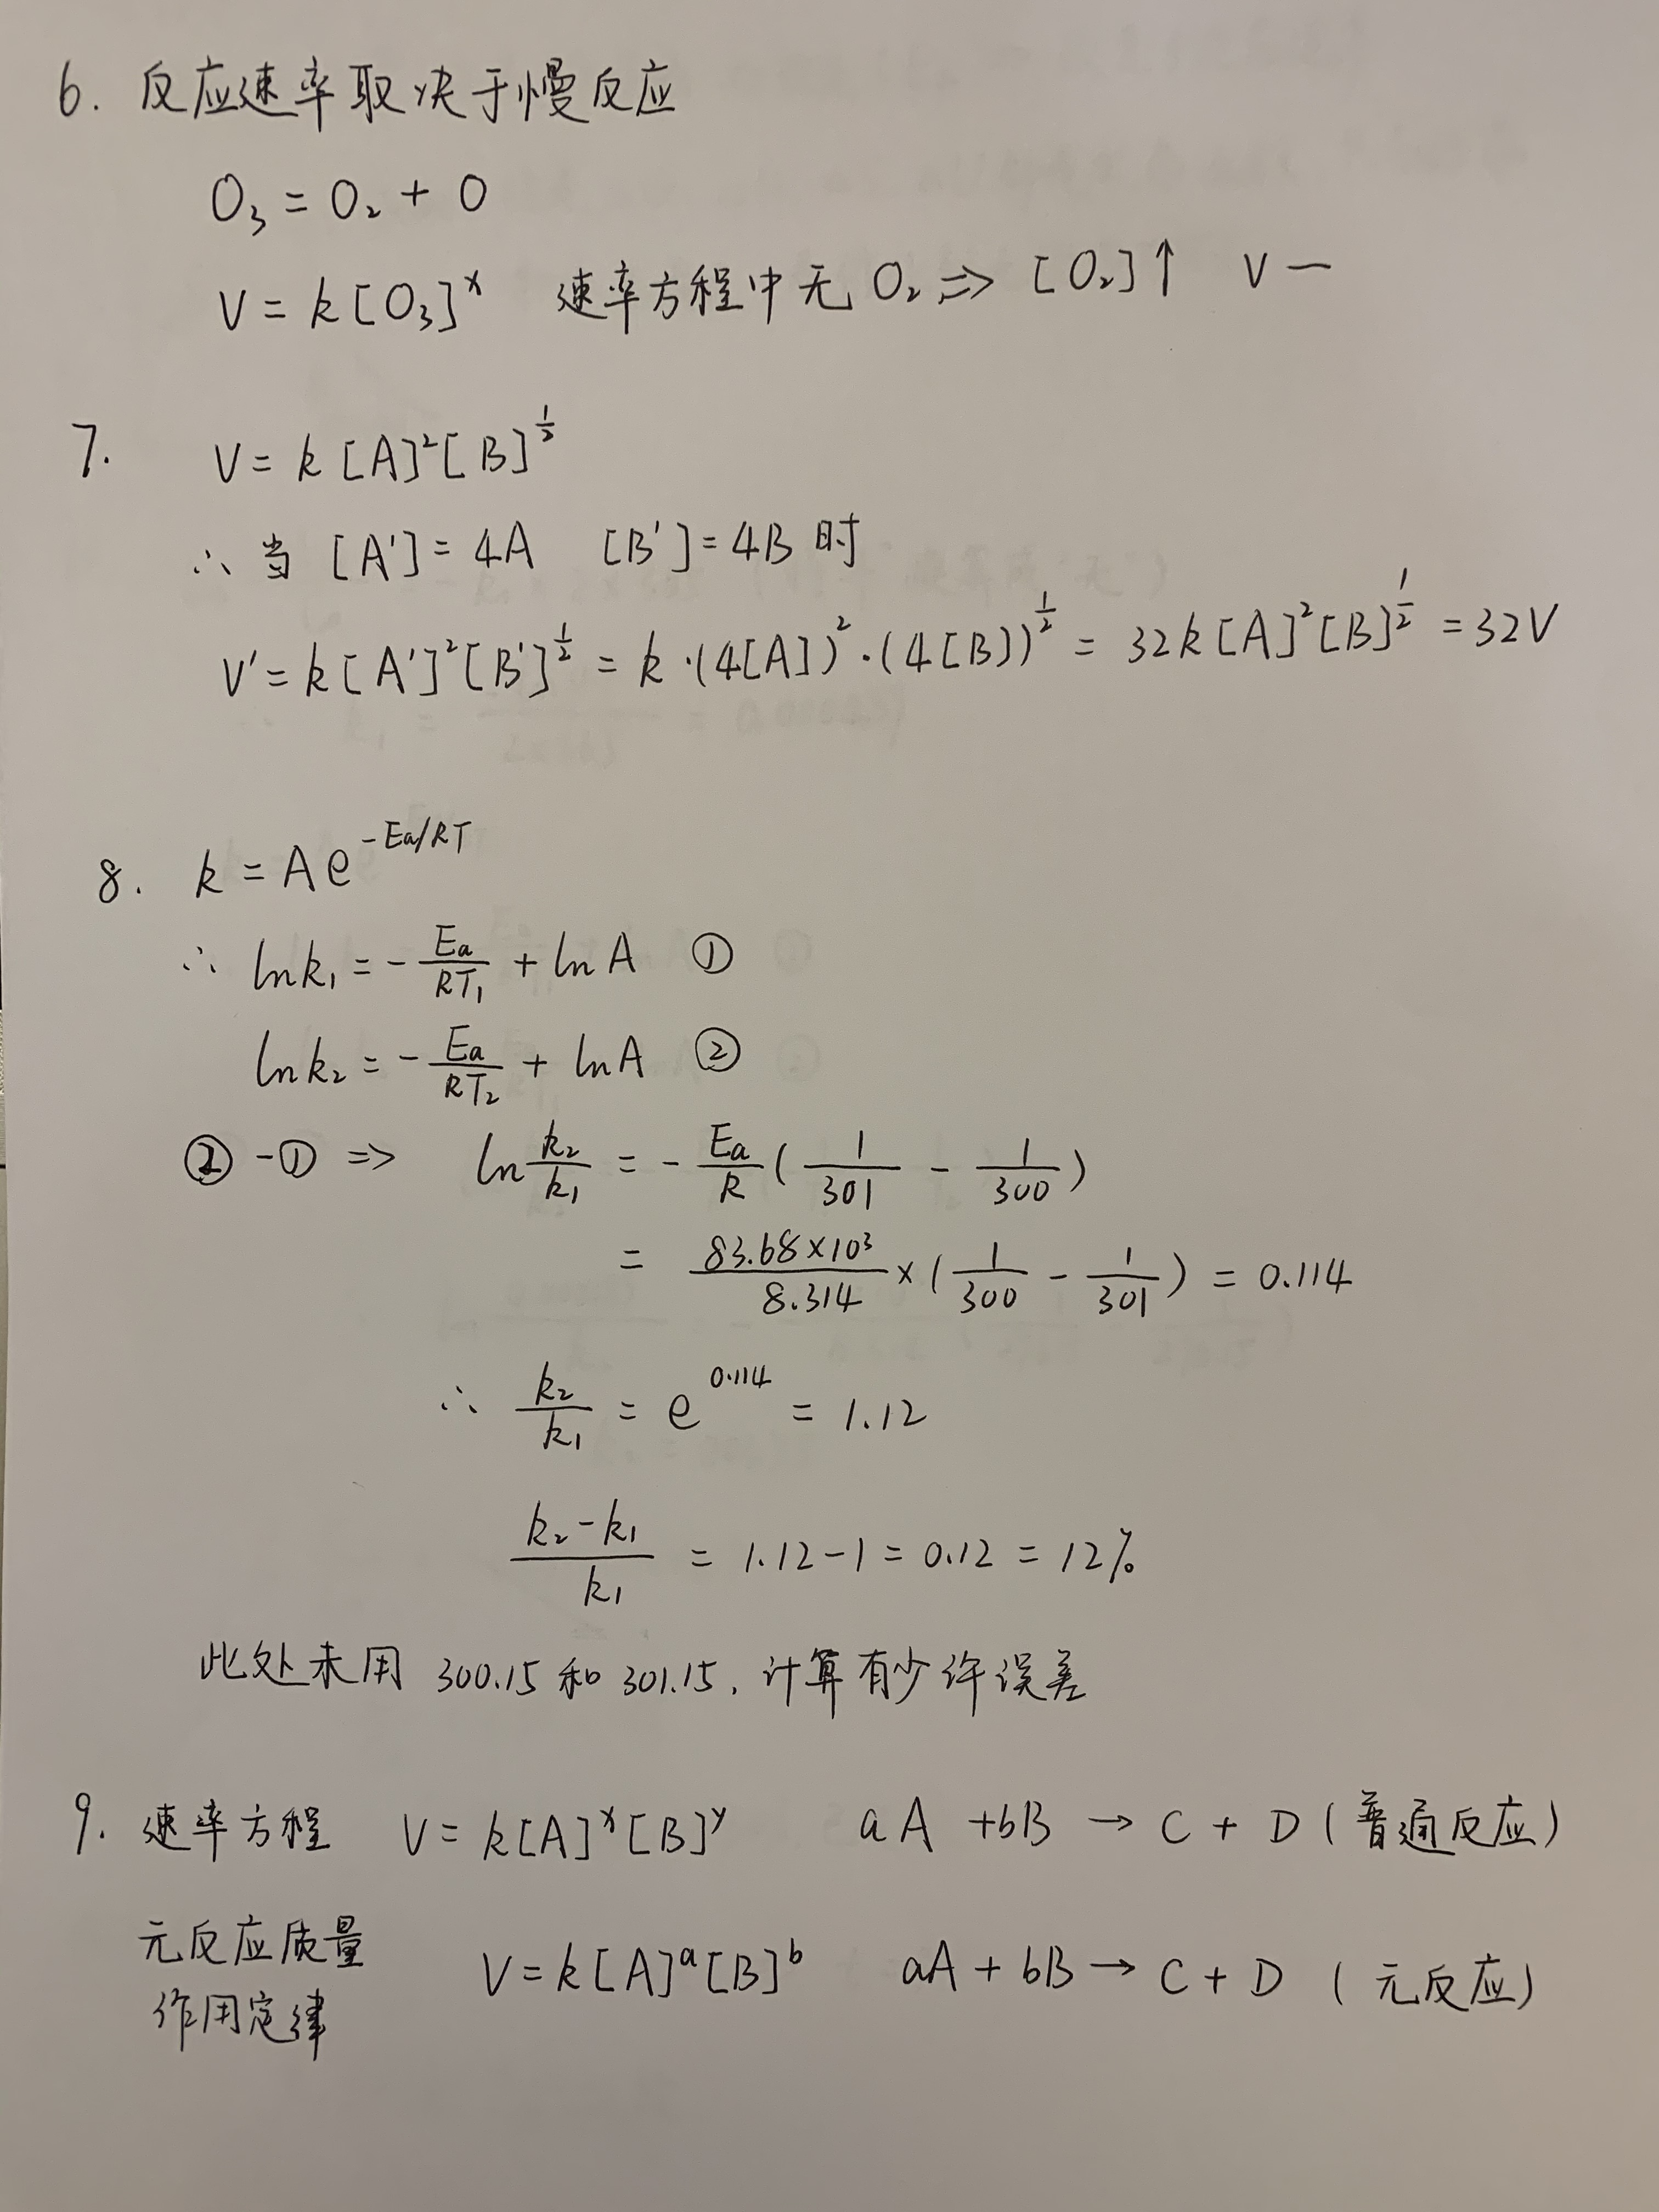 6. 反应速率取决于慢反应
O₃ = O₂ + O
V = k[O₃]ˣ 速率方程中无 O₂ ⇒ [O₂]↑ V —
7. V = k[A]²[B]^½
∴ 当 [A'] = 4A [B'] = 4B 时
V' = k[A']²[B']^½ = k·(4[A])²·(4[B])^½ = 32k[A]²[B]^½ = 32V
8. k = Ae^(-Ea/RT)
∴ lnk₁ = -Ea/RT₁ + lnA ①
lnk₂ = -Ea/RT₂ + lnA ②
②-① ⇒ ln k₂/k₁ = -Ea/R (1/301 - 1/300)
= 83.68×10³/8.314 × (1/300 - 1/301) = 0.114
∴ k₂/k₁ = e^0.114 = 1.12
(k₂-k₁)/k₁ = 1.12-1 = 0.12 = 12%
此处未用 300.15 和 301.15, 计算有少许误差
9. 速率方程 V = k[A]ˣ[B]ʸ aA + bB → C + D (普通反应)
元反应质量
作用定律 V = k[A]ᵃ[B]ᵇ aA + bB → C + D (元反应)